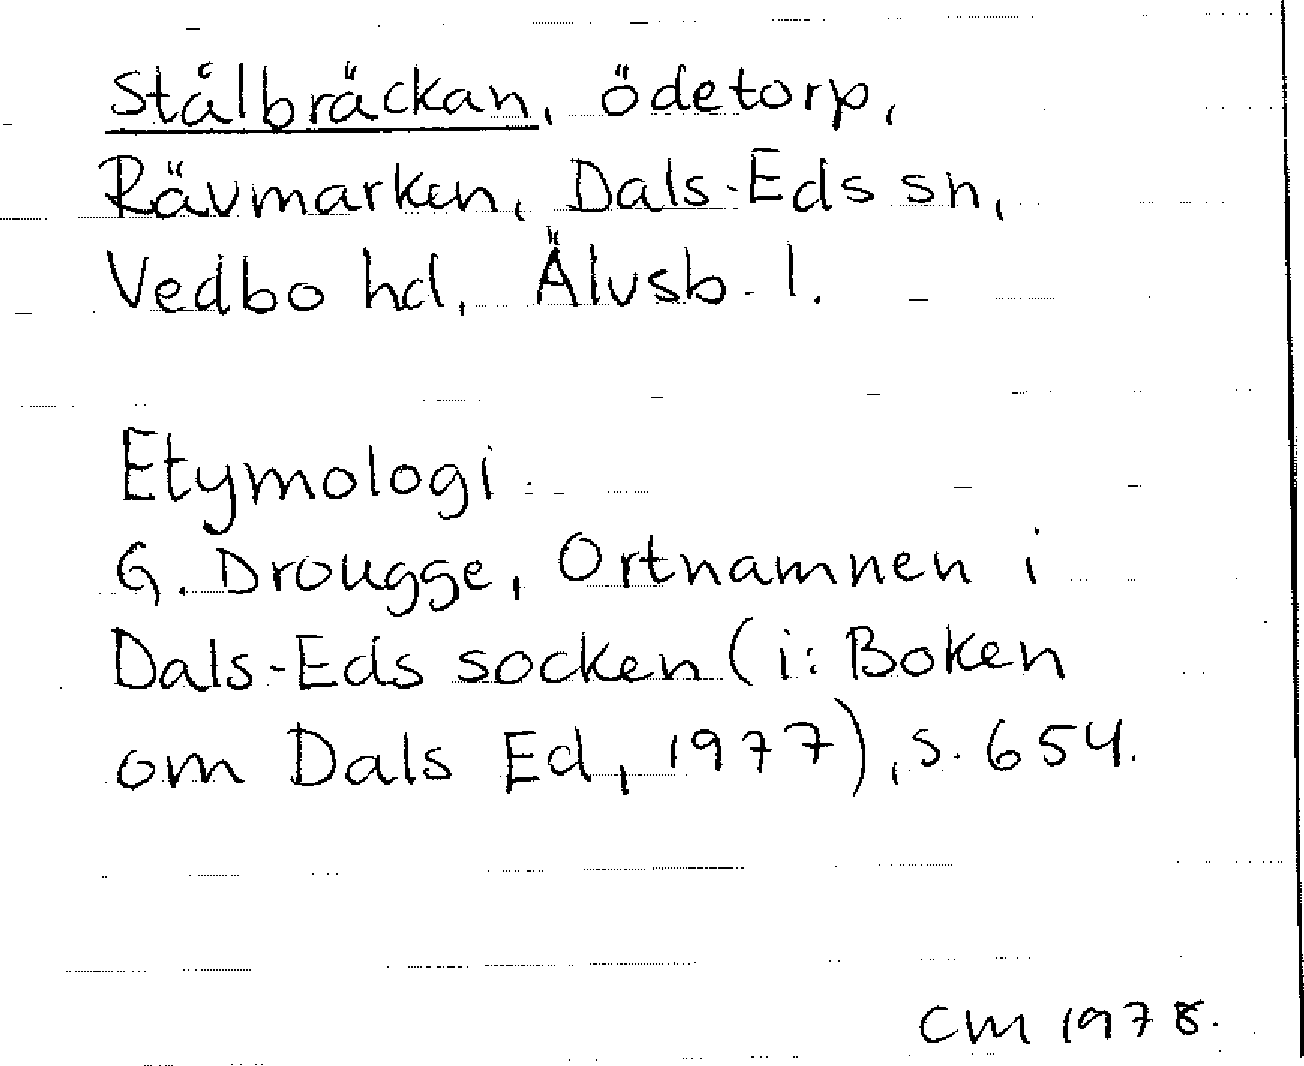 Stålbräckan, ödetorp,
Rävmarken, Dals-Eds sn,
Vedbo hd, Älvsb. l.
Etymologi:
G. Drougge, Ortnamnen i
Dals-Eds socken (i: Boken
om Dals Ed, 1977), s. 654.
CM 1978.